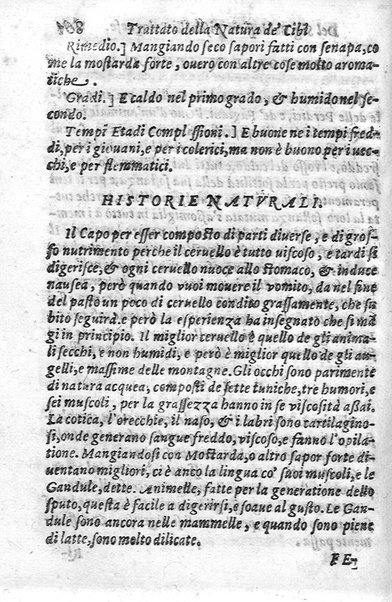 Trattato della Natura de' Cibi
Rimedio.] Mangiando seco sapori fatti con senapa, co
me la mostarda forte, ouero con altre cose molto aroma-
tiche.
Gradi.] E caldo nel primo grado, & humido nel se-
condo.
Tempi Etadi Compl ssioni.] E buone ne i tempi fred
di, per i giouani, e per i colerici, ma non è buono per i uec-
chi, e per flemmatici.
HISTORIE NATVRALI.
Il Capo per esser composto di parti diverse, e di gros-
so nutrimento perche il ceruello è tutto uiscoso, e tardi si
digerisce, & ogni ceruello nuoce allo stomaco, & induce
nausea, però quando vuoi mouere il vomito, da nel fine
del pasto un poco di ceruello condito grassamente, che su
bito seguirà. e però la esperienza ha insegnato che si mã
gi in principio. Il miglior ceruello è quello de gli anima-
li secchi, e non humidi, e però è miglior quello de gli au
gelli, e massime delle montagne. Gli occhi sono parimente
di natura acquea, composti de sette tuniche, tre humori, e
sei muscoli, per la grassezza hanno in se viscosità assai.
La cotica, l'orecchie, il naso, & i labri sono cartilagino-
si, onde generano sangue freddo, viscoso, e fanno l'opila-
tione. Mangiandosi con Mostarda, o altro sapor forte di-
uentano migliori, ci è anco la lingua co' suoi muscoli, e le
Gandule, dette. Animelle, fatte per la generatione dello
sputo, questa è facile a digerirsi, e soaue al gusto. Le Gan-
dule sono ancora nelle mammelle, e quando sono piene
di latte, sono molto dilicate.
PE-